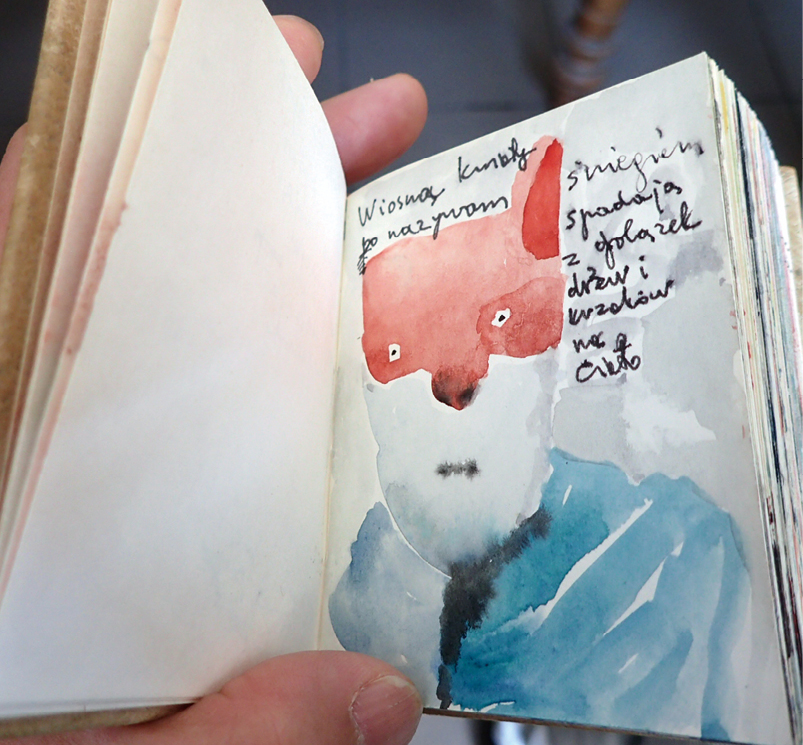 Wiosną kwiaty
nazywam
śniegiem
spadają
z gałązek
drzew i
krzaków
na
ciało